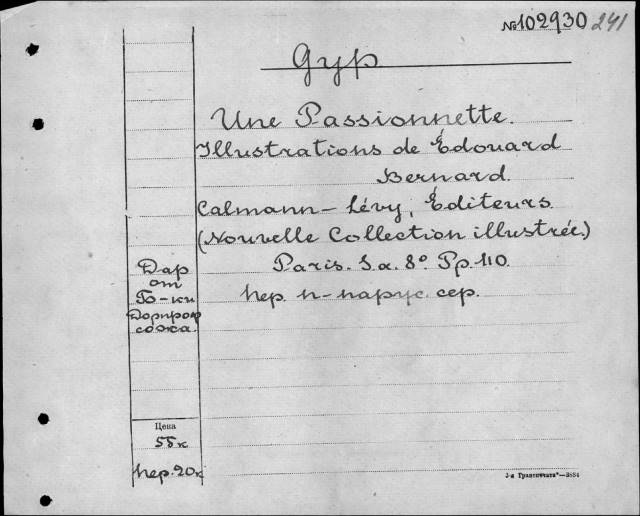 №102930 241
Gyp
Une Passionnette.
Illustrations de Édouard
Bernard.
Calmann-Lévy, Éditeurs.
(Nouvelle Collection illustrée.)
Paris. S.a. 8° Pp. 110.
Дар
от
Го-жи
пер. п-парус. сер.
Цена
55к
пер. 20к